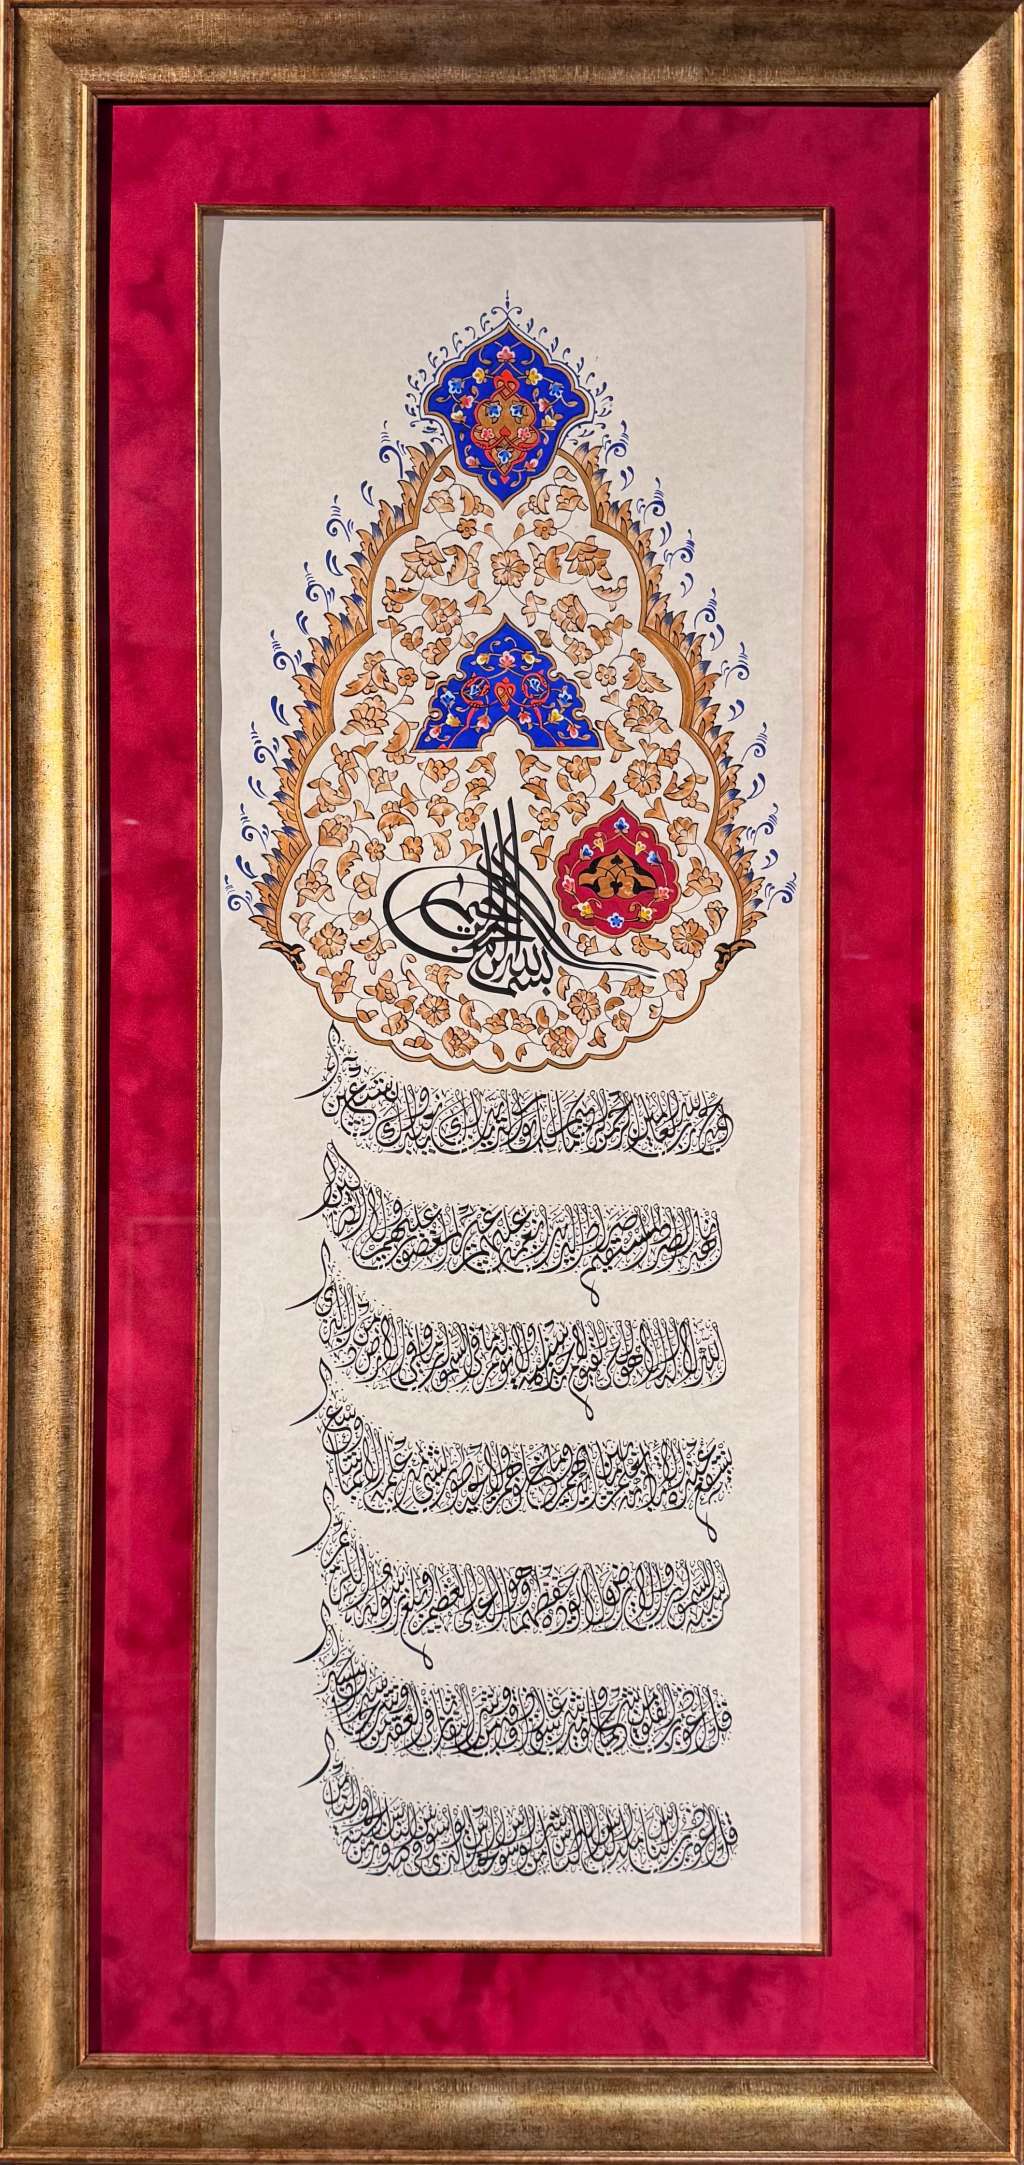 بسم الله الرحمن الرحيم
الحمد لله رب العالمين الرحمن الرحيم مالك يوم الدين إياك نعبد وإياك نستعين
اهدنا الصراط المستقيم صراط الذين أنعمت عليهم غير المغضوب عليهم ولا الضالين
الله لا إله إلا هو الحي القيوم لا تأخذه سنة ولا نوم له ما في السموات وما في الأرض من ذا الذي
يشفع عنده إلا بإذنه يعلم ما بين أيديهم وما خلفهم ولا يحيطون بشيء من علمه إلا بما شاء وسع
كرسيه السموات والأرض ولا يؤوده حفظهما وهو العلي العظيم
قل أعوذ برب الفلق من شر ما خلق ومن شر غاسق إذا وقب ومن شر النفاثات في العقد ومن شر حاسد إذا حسد
قل أعوذ برب الناس ملك الناس إله الناس من شر الوسواس الخناس الذي يوسوس في صدور الناس من الجنة والناس